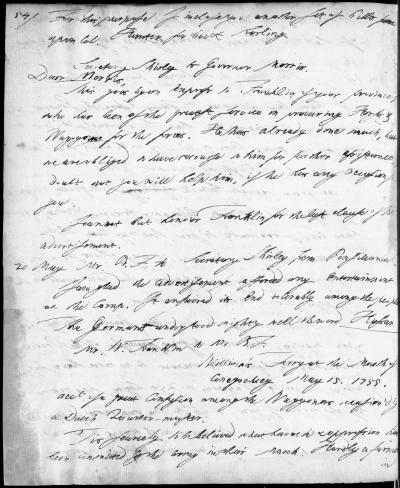 54/ For this purpose I inclose you another set of bills
upon Col. Hunter for 
Secretary Shirley to Governor Morris.
Dear Morris,
This goes by express to Franklin of your province,
who has been of the greatest service in procuring Horses &
Waggons for the forces. He has already done much, but
we are obliged to have recourse to him for further assistance
doubt not you will help him, if he has any occasion,
you.
I cannot but honour Franklin for the last clause of his
advertisement.
22 May Mr. B. F. to Secretary Shirley from
I am glad the advertisement afforded any entertainment
at the Camp. It answered its End tolerably among the people
The Germans understood mighty well the word
Mr. W. Franklin to Mr B. F.
William's Ferry at the Mouth of
Conegochieg May 15. 1755.
acct. of a great Confusion among the Waggoners occasion'd by
a Quarter-master.
Tis scarcely to be believed what havock & oppression has
been committed by the army in their March. Hardly a farmer